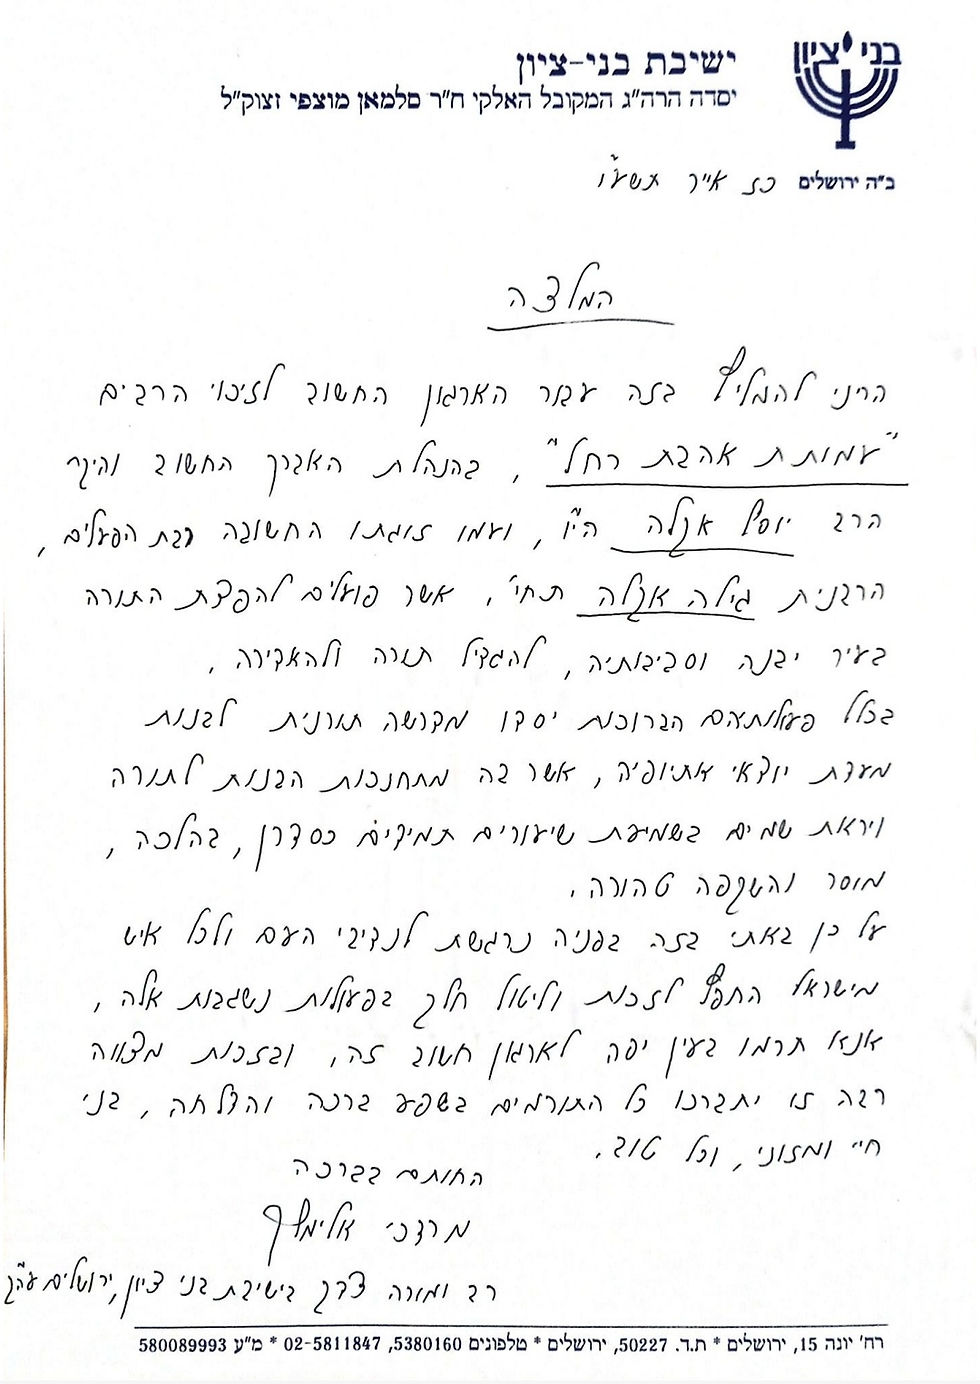 בני ציון
ישיבת בני-ציון
יסדה הרה"ג המקובל האלקי ח"ר סלמאן מוצפי זצוק"ל
ב"ה ירושלים כז אייר תשע"ו
המלצה
הריני להמליץ בזה עבור הארגון החשוב לזיכוי הרבים
"עמותת אהבת רחל", בהנהלת האברך החשוב והיקר
הרב יוסף אקלה הי"ו, ועמו זוגתו החשובה רבת הפעלים,
הרבנית גילה אקלה תחי', אשר פועלים להפצת התורה
בעיר יבנה וסביבותיה, להגדיל תורה ולהאדירה,
בכלל פעולותיהם הברוכות יסדו מדרשה תורנית לבנות
מעדת יוצאי אתיופיה, אשר בה מתחנכות הבנות לתורה
ויראת שמים בשמיעת שיעורים תמידים כסדרן, בהלכה,
מוסר והשקפה טהורה.
על כן באתי בזה בפניה נרגשת לנדיבי העם ולכל איש
מישראל החפץ לזכות וליטול חלק בפעולות נשגבות אלה,
אנא תרמו בעין יפה לארגון חשוב זה, ובזכות מצווה
רבה זו יתברכו כל התורמים בשפע ברכה והצלחה, בני
חיי ומזוני, וכל טוב.
החותם בברכה
מרדכי אלימלך
רב ומורה צדק בישיבת בני ציון, ירושלים עה"ק
רח' יונה 15, ירושלים * ת.ד. 50227, ירושלים * טלפונים 5380160, 02-5811847 * מ"ע 580089993